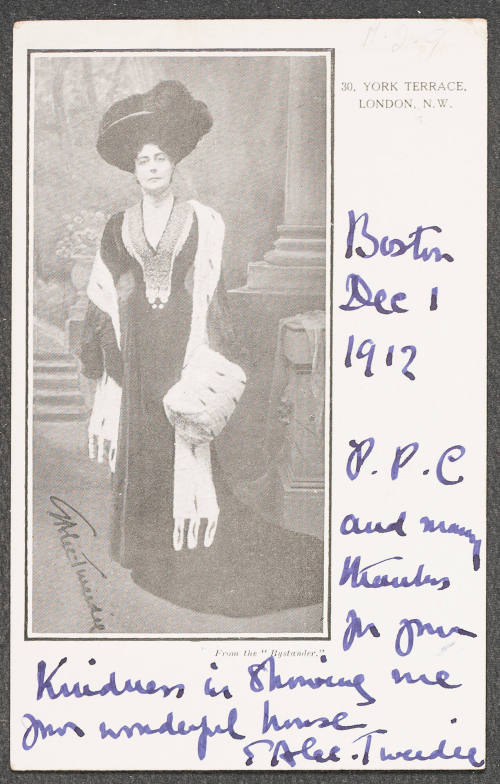 30, YORK TERRACE,
LONDON, N.W.
Boston
Dec 1
1912
P.P.C
and many
thanks
for your
From the "Bystander."
Kindness in Showing me
your wonderful house
E Alec-Tweedie
E Alec-Tweedie